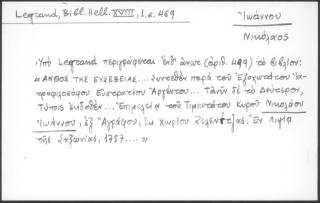 Legrand, Bibl. Hell. XVIII, 1, σ. 469
Ἰωάννου
Νικόλαος
Ὑπὸ Legrand περιγράφεται ἐκδ. ἄνωτ. (ἀριθ. 499) τὸ βιβλίον:
«ΑΝΘΟΣ ΤΗΣ ΕΥΣΕΒΕΙΑΣ... Συντεθὲν παρὰ τοῦ Ἐξοχωτάτου Ἰα-
τροφιλοσόφου Εὐστρατίου Ἀργέντου... Τανῦν δὲ τὸ Δεύτερον,
Τύποις ἐκδοθὲν... Ἐπιμελείᾳ τοῦ Τιμιωτάτου κυροῦ Νικολάου
Ἰωάννου, ἐξ Ἀγράφου, Ἐκ Χωρίου Ζελενίτζας. Ἐν Λιψίᾳ
τῆς Σαξωνίας, 1757....»